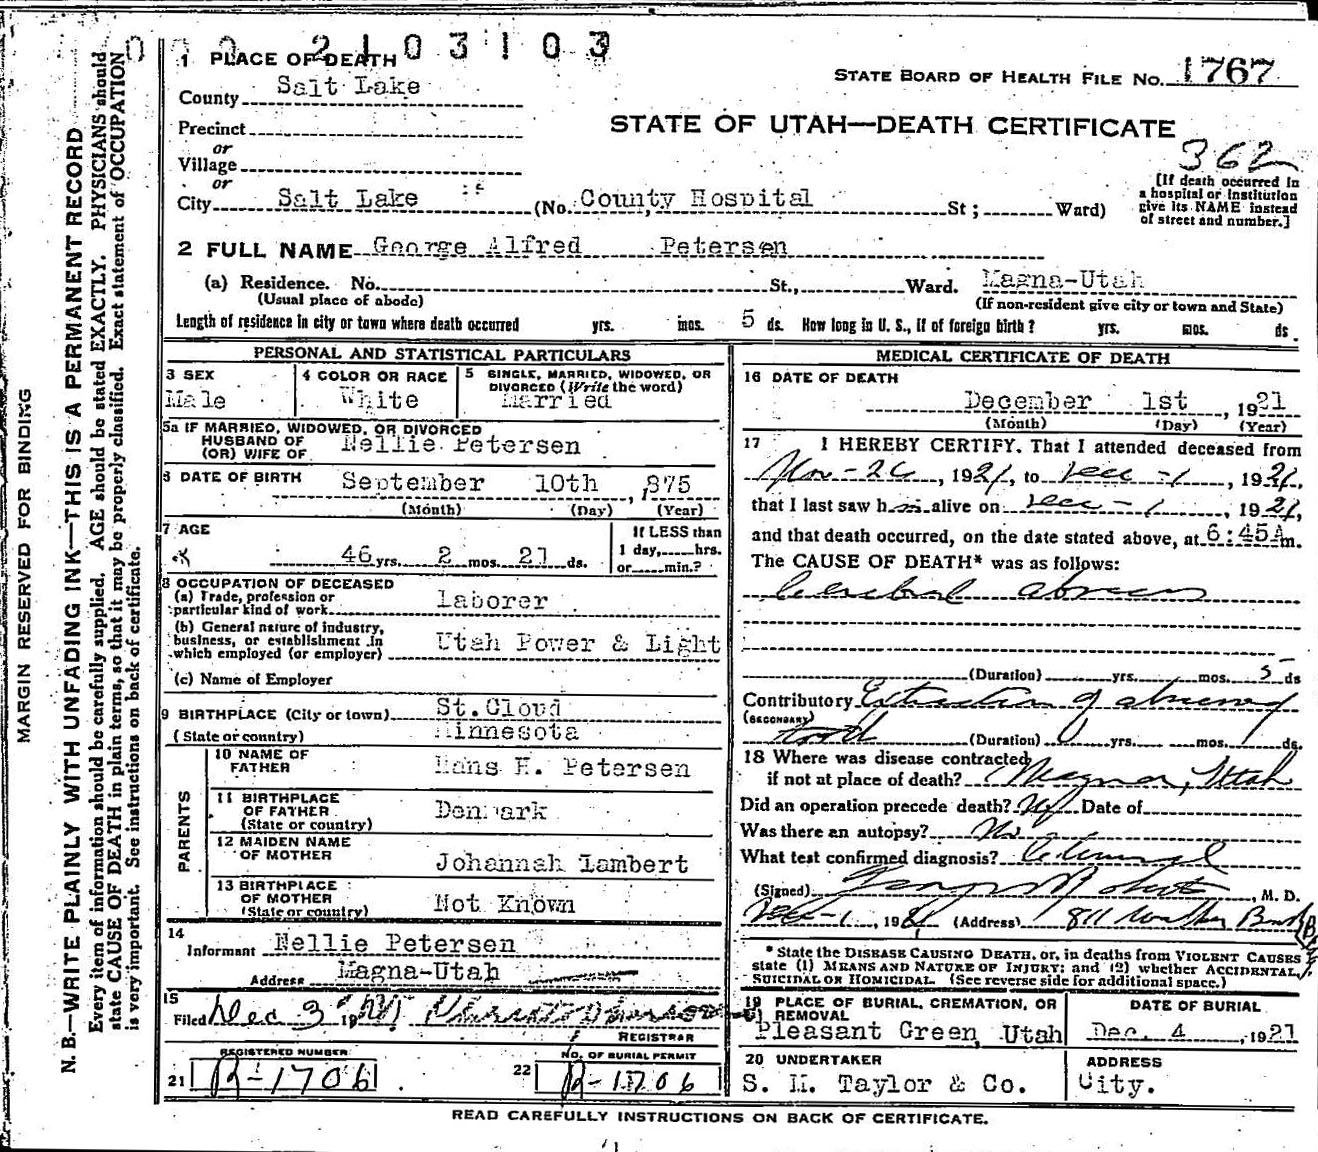 2103103
1 PLACE OF DEATH
STATE BOARD OF HEALTH FILE No. 1767
County Salt Lake
STATE OF UTAH—DEATH CERTIFICATE
Precinct
or
Village
362
or
City Salt Lake (No. County Hospital St ; Ward)
[If death occurred in
a hospital or institution
give its NAME instead
of street and number.]
2 FULL NAME George Alfred Petersen
(a) Residence. No. St., Ward. Magna-Utah
(Usual place of abode) (If non-resident give city or town and State)
Length of residence in city or town where death occurred yrs. mos. 5 ds. How long in U. S., if of foreign birth? yrs. mos. ds.
PERSONAL AND STATISTICAL PARTICULARS
3 SEX
Male
4 COLOR OR RACE
White
5 SINGLE, MARRIED, WIDOWED, OR
DIVORCED (Write the word)
Married
5a IF MARRIED, WIDOWED, OR DIVORCED
HUSBAND OF
(OR) WIFE OF Nellie Petersen
6 DATE OF BIRTH September 10th , 875
(Month) (Day) (Year)
7 AGE
46 yrs. 2 mos. 21 ds.
If LESS than
1 day, hrs.
or min.?
8 OCCUPATION OF DECEASED
(a) Trade, profession or
particular kind of work laborer
(b) General nature of industry,
business, or establishment in
which employed (or employer) Utah Power & Light
(c) Name of Employer
9 BIRTHPLACE (City or town) St.Cloud
(State or country) Minnesota
PARENTS
10 NAME OF
FATHER Hans H. Petersen
11 BIRTHPLACE
OF FATHER
(State or country) Denmark
12 MAIDEN NAME
OF MOTHER Johannah Lambert
13 BIRTHPLACE
OF MOTHER
(State or country) Not Known
14
Informant Nellie Petersen
Address Magna-Utah
15
Filed Dec 3
REGISTRAR
REGISTERED NUMBER
21 R-1706
NO. OF BURIAL PERMIT
22 R-1706
MEDICAL CERTIFICATE OF DEATH
16 DATE OF DEATH
December 1st , 1921
(Month) (Day) (Year)
17 I HEREBY CERTIFY, That I attended deceased from
Nov-26, 1921, to Dec-1, 1921,
that I last saw him alive on Dec-1, 1921,
and that death occurred, on the date stated above, at 6:45A m.
The CAUSE OF DEATH* was as follows:
Cerebral abscess
(Duration) yrs. mos. 5 ds
Contributory Extraction of abscessed
(SECONDARY)
tooth (Duration) yrs. mos. ds.
18 Where was disease contracted
if not at place of death? Magna, Utah
Did an operation precede death? No Date of
Was there an autopsy? No
What test confirmed diagnosis?
(Signed) , M. D.
Dec-1, 1921 (Address) 811 Walker Bank
* State the DISEASE CAUSING DEATH, or, in deaths from VIOLENT CAUSES
state (1) MEANS AND NATURE OF INJURY; and (2) whether ACCIDENTAL,
SUICIDAL OR HOMICIDAL. (See reverse side for additional space.)
19 PLACE OF BURIAL, CREMATION, OR
REMOVAL
Pleasant Green, Utah
DATE OF BURIAL
Dec. 4 , 1921
20 UNDERTAKER
S. M. Taylor & Co.
ADDRESS
City.
READ CAREFULLY INSTRUCTIONS ON BACK OF CERTIFICATE.
MARGIN RESERVED FOR BINDING
N. B.—WRITE PLAINLY WITH UNFADING INK—THIS IS A PERMANENT RECORD
Every item of information should be carefully supplied. AGE should be stated EXACTLY. PHYSICIANS should
state CAUSE OF DEATH in plain terms, so that it may be properly classified. Exact statement of OCCUPATION
is very important. See instructions on back of certificate.